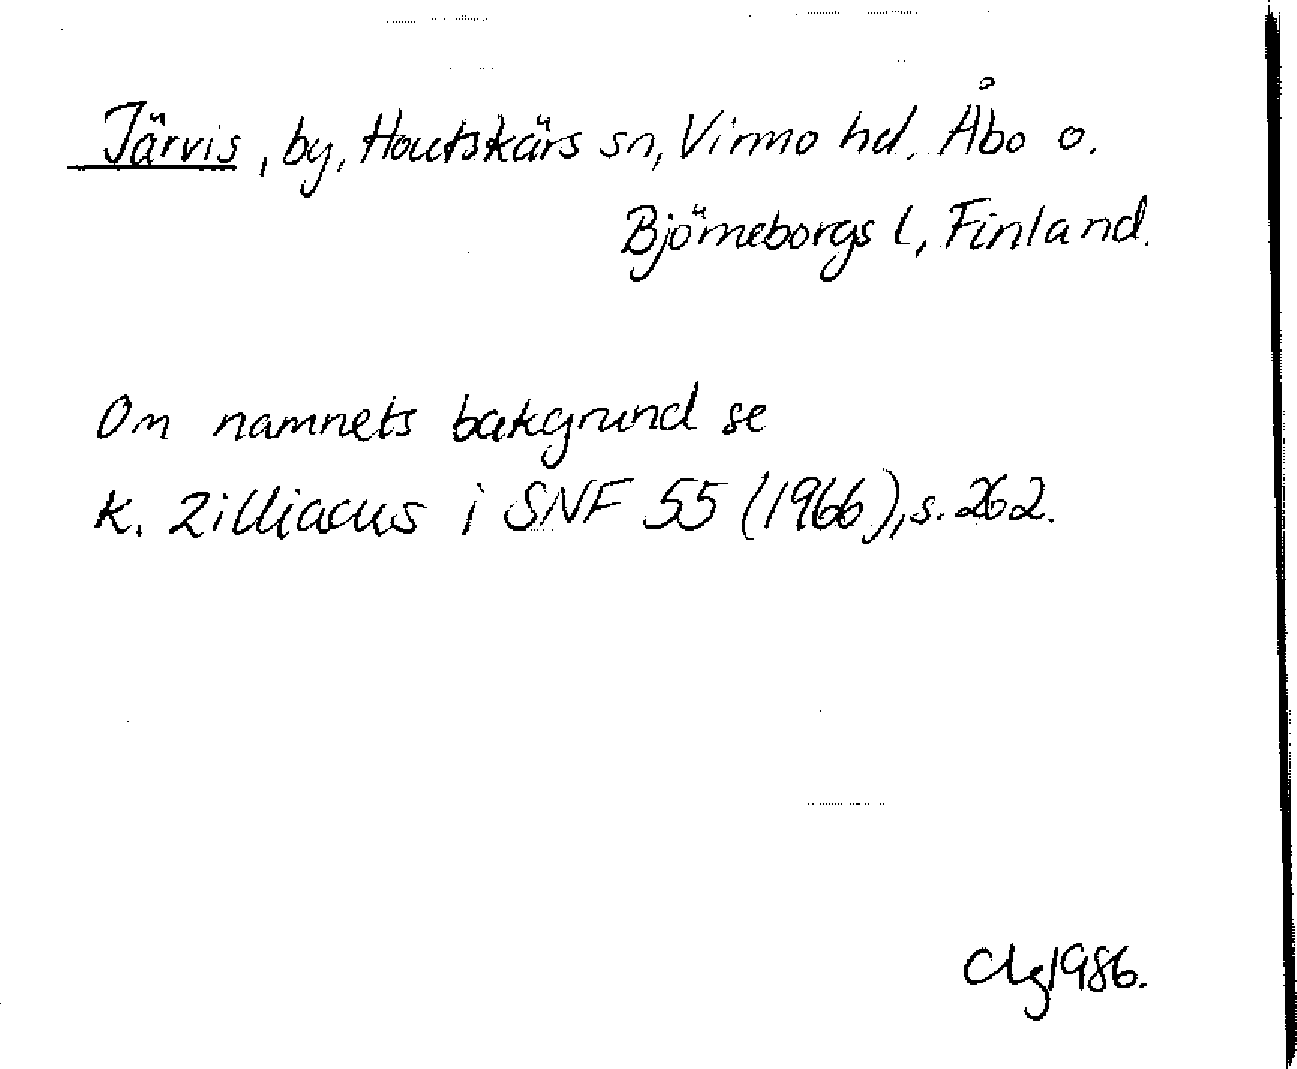 Järvis, by, Houtskärs sn, Virmo hd. Åbo o.
Björneborgs l, Finland.
Om namnets bakgrund se
K. Zilliacus i SNF 55 (1966), s. 262.
Clg 1986.